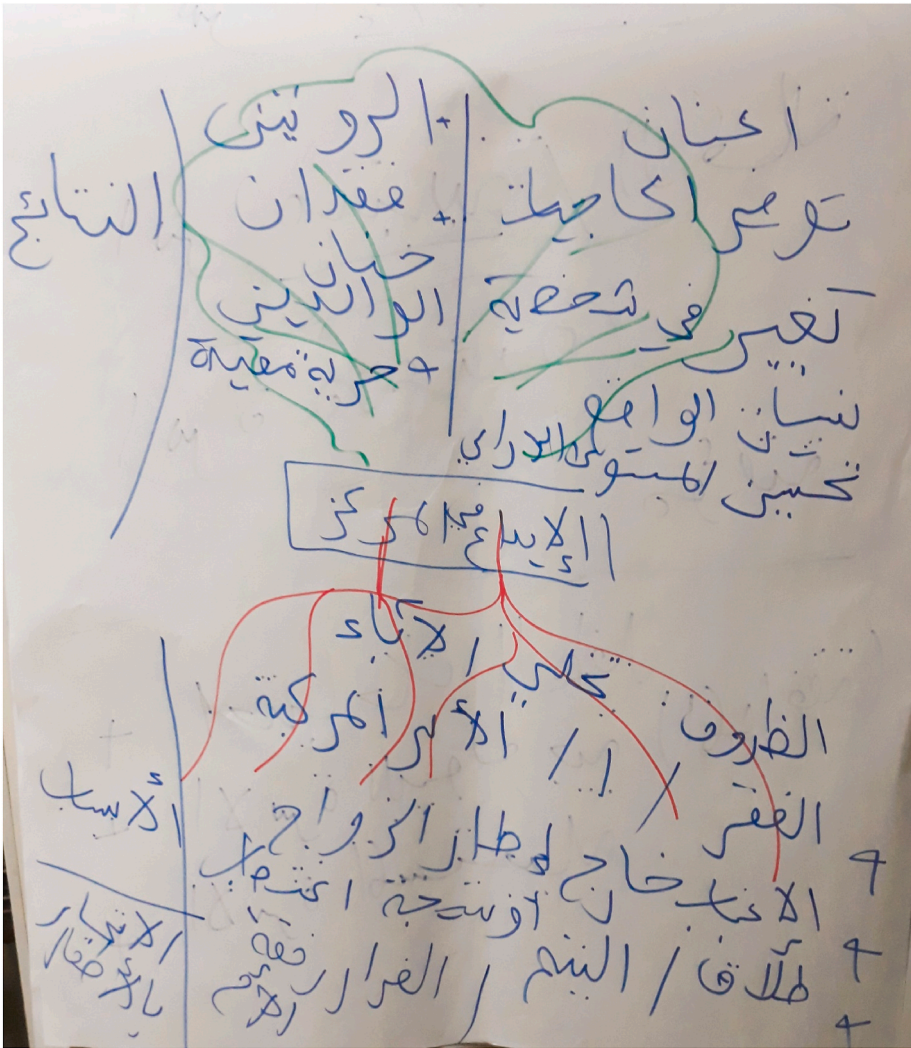 احنان
توفير الحاجيات
تغيير في شخصية
نسيان الواقع
تحسين المستوى الدراسي
+ الروتيني
+ فقدان
حنان
الوالدين
+ حرية مقيدة
النتائج
الإيداع في المركز
تخلي الآباء
الظروف / ا / الأسر المركبة
الفقر
+ الانجاب خارج إطار الزواج
أو نتيجة اغتصاب
+ طلاق / اليتم / الفرار رفقة الأم
+
الأسباب
الاتجار
بالأطفال